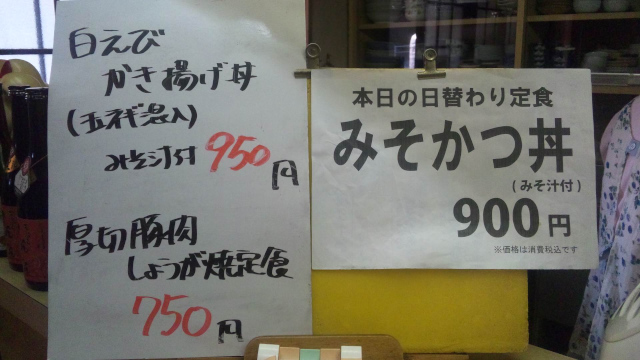 白えび
かき揚げ丼
(玉ネギ混入)
みそ汁付 950円
厚切豚肉
しょうが焼定食
750円
本日の日替わり定食
みそかつ丼
(みそ汁付)
900円
※価格は消費税込です